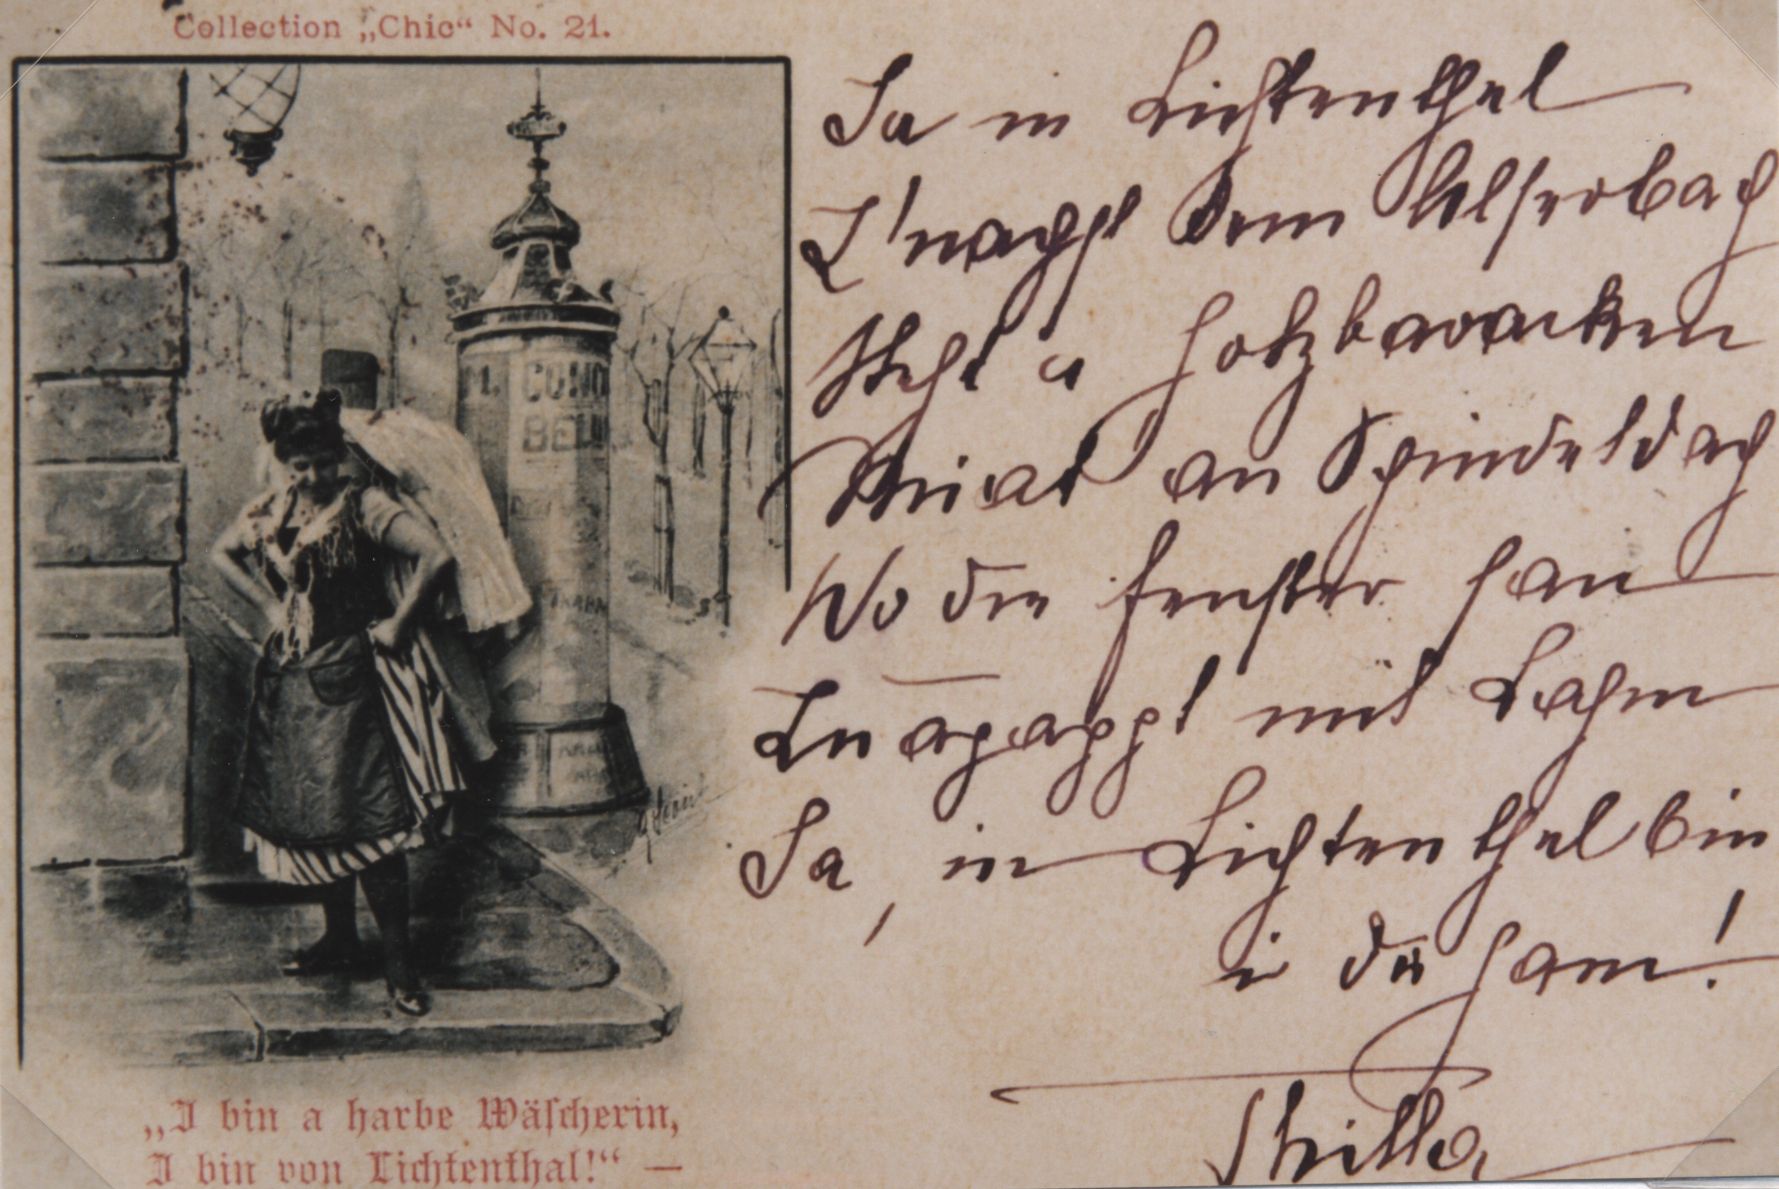 Collection „Chic“ No. 21.
CONC
BEL
„I bin a harbe Wäscherin,
I bin von Lichtenthal!“ —
Ja in Lichtenthal
Z'nachst dem Alserbach
Steht a Holzbaracken
an Spindeldach
Wo die Fenster san
mit Lahm
Ja, in Lichtenthal bin
i da ham!